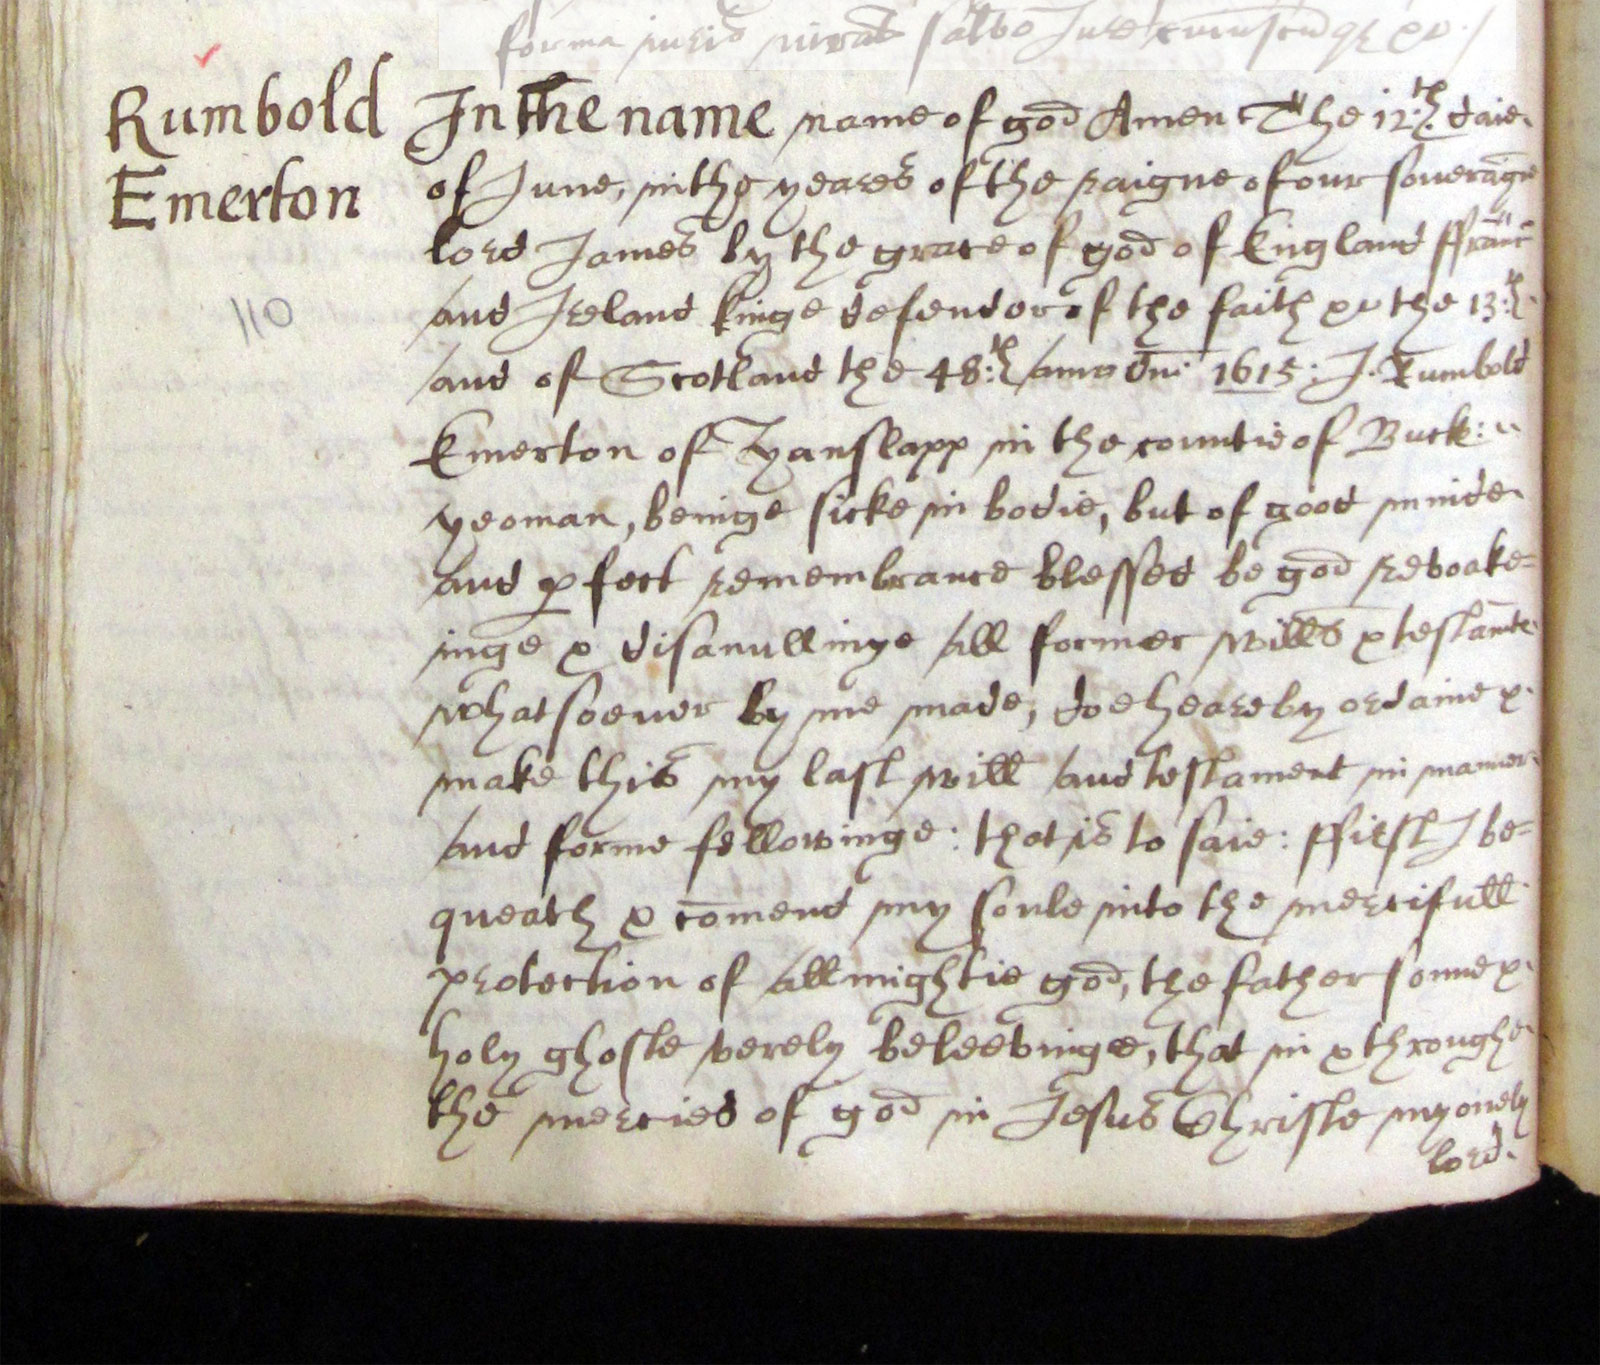 forma iuris iurat salvo Jure cuiuscūqꝫ &c.
Rumbold
Emerton
110
In the name name of god Amen The 12:th daie
of June, in the yeares of the raigne of our soveraigne
lord James by the grace of god of England ffranc
and Ireland kinge defendor of the faith &c the 13:th
and of Scotland the 48:th anno dni 1615: I Rumbold
Emerton of Hanslapp in the countie of Buck:
yeoman, beinge sicke in bodie, but of good minde
and pfect remembrance blessed be god revoake=
inge & disanullinge all former wills & testamte
whatsoever by me made, doe heareby ordaine &
make this my last will and testament in manner
and forme followinge: that is to saie: ffirst I be=
queath & comend my soule into the mercifull
protection of allmightie god, the father sonne &
holy ghoste verely beleevinge, that in & throughe
the mercies of god in Jesus Christe my onely
lord